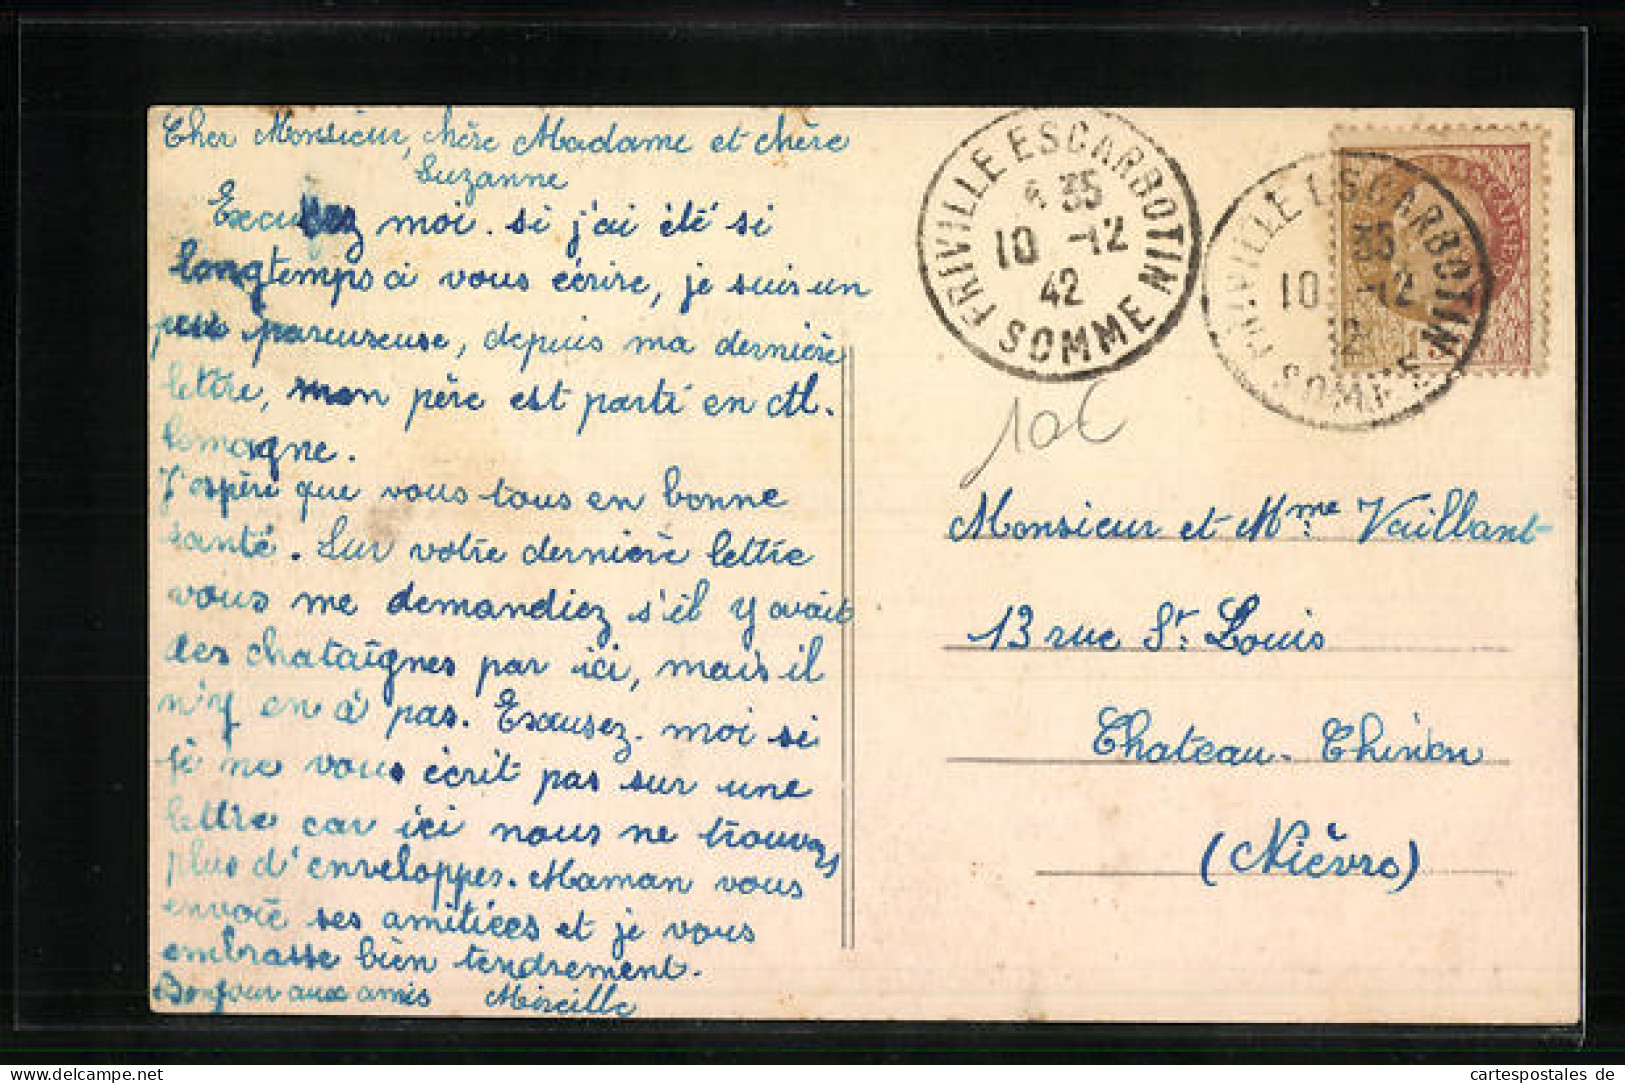 Cher Monsieur, chère Madame et chère
Suzanne
Excusez moi. si j'ai été si
longtemps à vous écrire, je suis un
peu pareuseuse, depuis ma dernière
lettre, mon père est parti en All.
lemagne.
J'espère que vous tous en bonne
santé. Sur votre dernière lettre
vous me demandiez s'il y avait
des chataîgnes par ici, mais il
n'y en à pas. Excusez. moi si
je ne vous écrit pas sur une
lettre car ici nous ne trouvons
plus d'enveloppes. Maman vous
envoie ses amitiées et je vous
embrasse bien tendrement.
Bonjour aux amis Mireille
FRIVILLE ESCARBOTIN
35
10 -12
42
SOMME
FRIVILLE ESCARBOTIN
35
10 -12
SOMME
10€
Monsieur et Mme Vaillant
13 rue St. Louis
Chateau-Chinon
(Nièvre)
cartespostales de